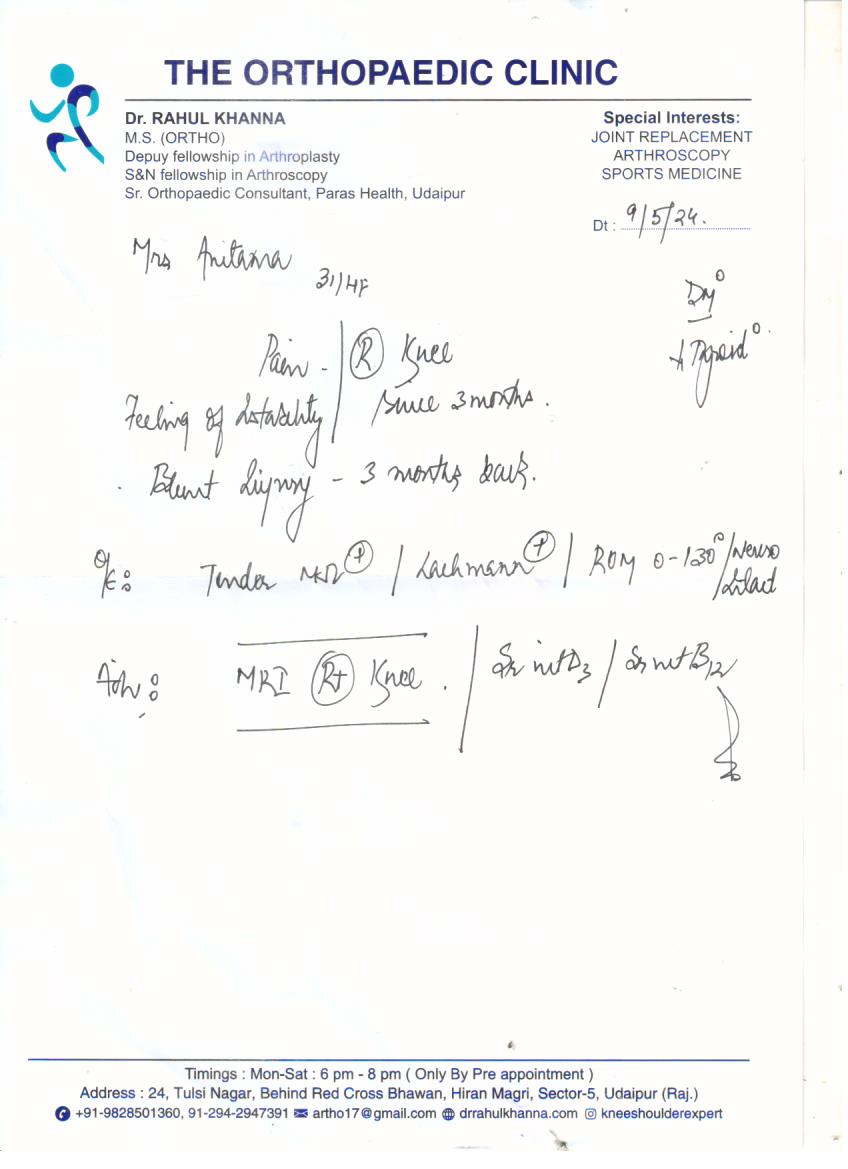 THE ORTHOPAEDIC CLINIC
Dr. RAHUL KHANNA
M.S. (ORTHO)
Depuy fellowship in Arthroplasty
S&N fellowship in Arthroscopy
Sr. Orthopaedic Consultant, Paras Health, Udaipur
Special Interests:
JOINT REPLACEMENT
ARTHROSCOPY
SPORTS MEDICINE
Dt : 9/5/24.
Mrs
DM°
Pain - | Ⓡ Knee
Feeling of | Since 3 months.
. Blunt - 3 months back.
O/E: Tender ⊕ / Lachmann ⊕ / ROM 0-130° / Neuro
Adv: MRI Rt Knee. / Sr vit D3 / Sr vit B12
Timings : Mon-Sat : 6 pm - 8 pm ( Only By Pre appointment )
Address : 24, Tulsi Nagar, Behind Red Cross Bhawan, Hiran Magri, Sector-5, Udaipur (Raj.)
+91-9828501360, 91-294-2947391 artho17@gmail.com drrahulkhanna.com kneeshoulderexpert